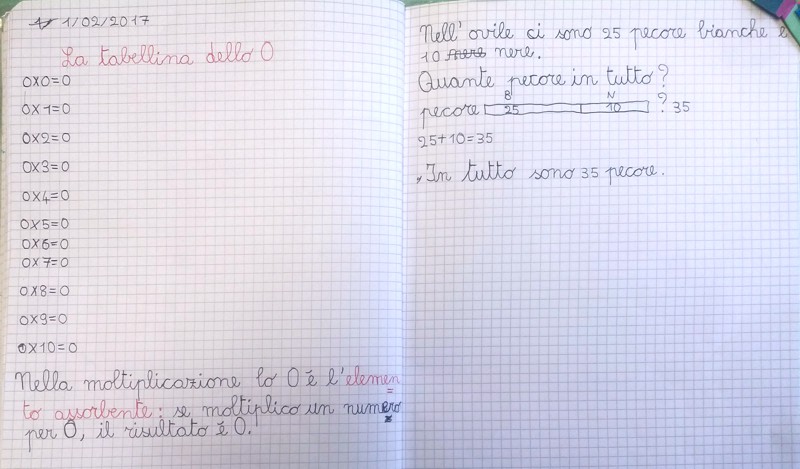 1/02/2017
La tabellina dello 0
0X0=0
0X1=0
0X2=0
0X3=0
0X4=0
0X5=0
0X6=0
0X7=0
0X8=0
0X9=0
0X10=0
Nella moltiplicazione lo 0 è l'elemen
to assorbente: se moltiplico un numero
per 0, il risultato è 0.
Nell'ovile ci sono 25 pecore bianche e
10 nere.
Quante pecore in tutto?
B N
pecore 25 10 ? 35
25+10=35
In tutto sono 35 pecore.